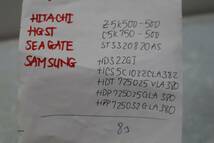 HITACHI Z5K500-500
HGST C5K750-500
SEAGATE ST3320820AS
SAMSUNG HD322GJ
HCS5C1022CLA382
HDT725025VLA380
HDP725025GLA380
HPP725032GLA380